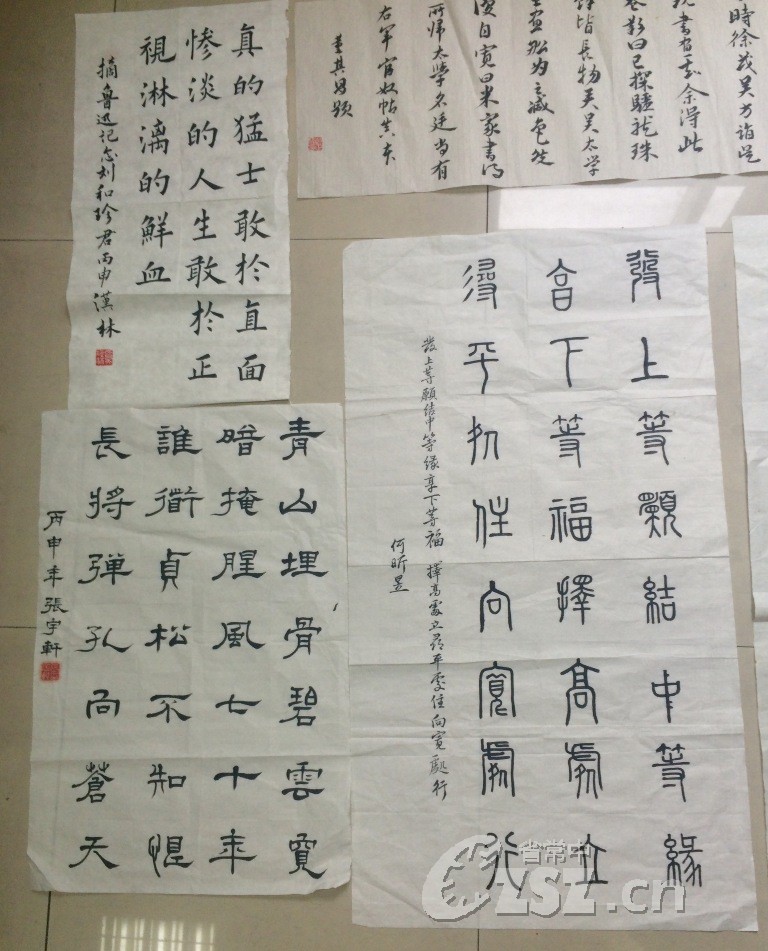 真的猛士敢於直面
惨淡的人生敢於正
視淋漓的鮮血
摘魯迅記念刘和珍君丙申漢林
時徐茂吴方詣
觀書畫余得此
卷歎曰已探驪龍珠
餘皆長物矣吴太学
書画船为之减色然
後自寬曰米家書得
所帰太學名廷尚有
右军官奴帖真本
董其昌題
發上等願結中等緣
享下等福擇高處立
尋平処住向寬處行
發上等願結中等缘享下等福 擇高處立尋平處住向寬處行
何昕昱
青山埋骨碧雲寬
暗掩腥風七十年
誰衛貞松不知惧
長將弹孔向蒼天
丙申年張宇軒
省常中
CZSZ.cn